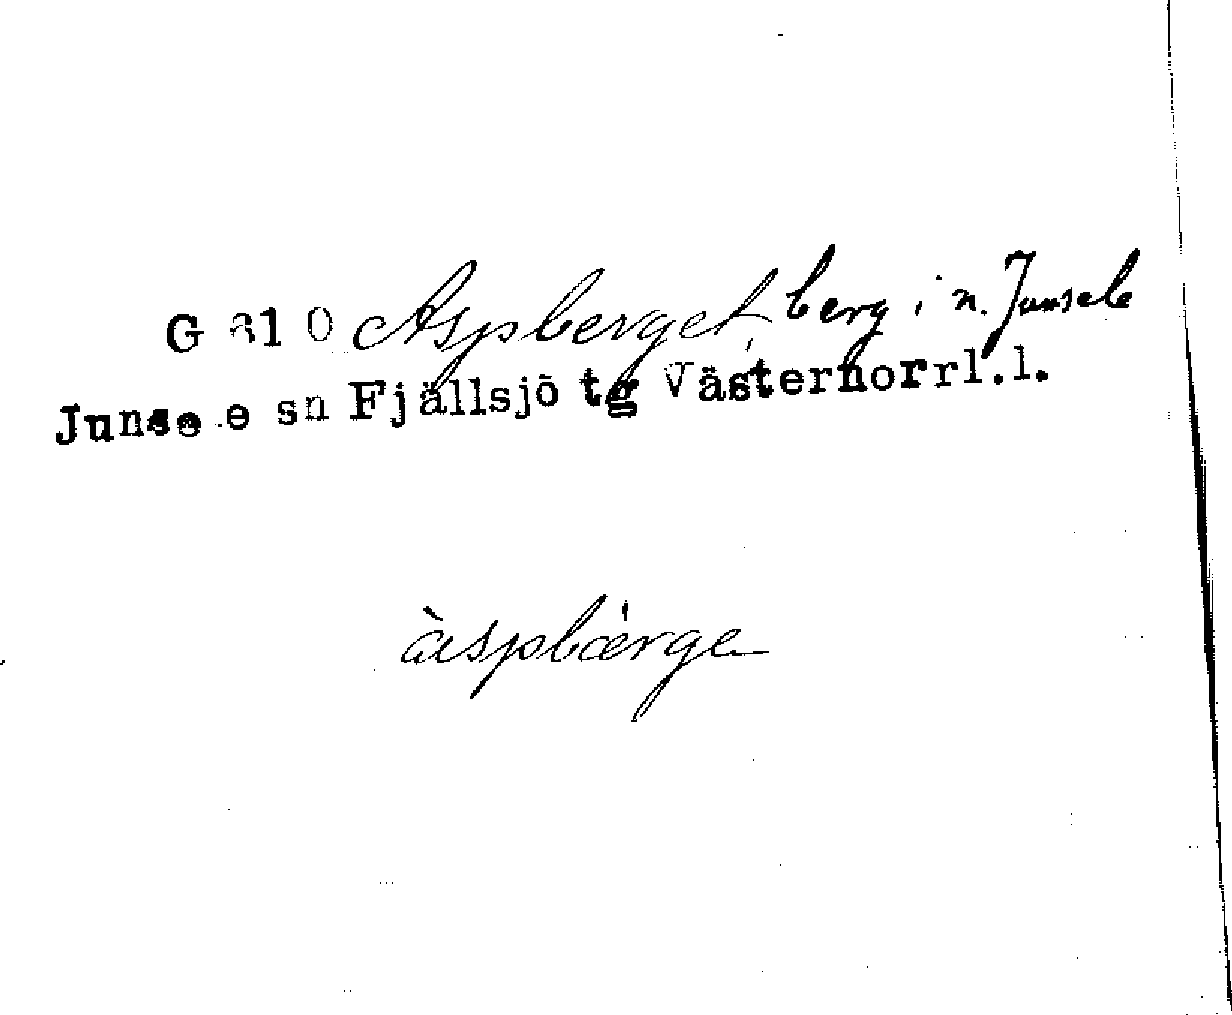 G 310 Aspberget, berg i n. Junsele
Junse e sn Fjällsjö tg Västernorrl.l.
àspbǽrge